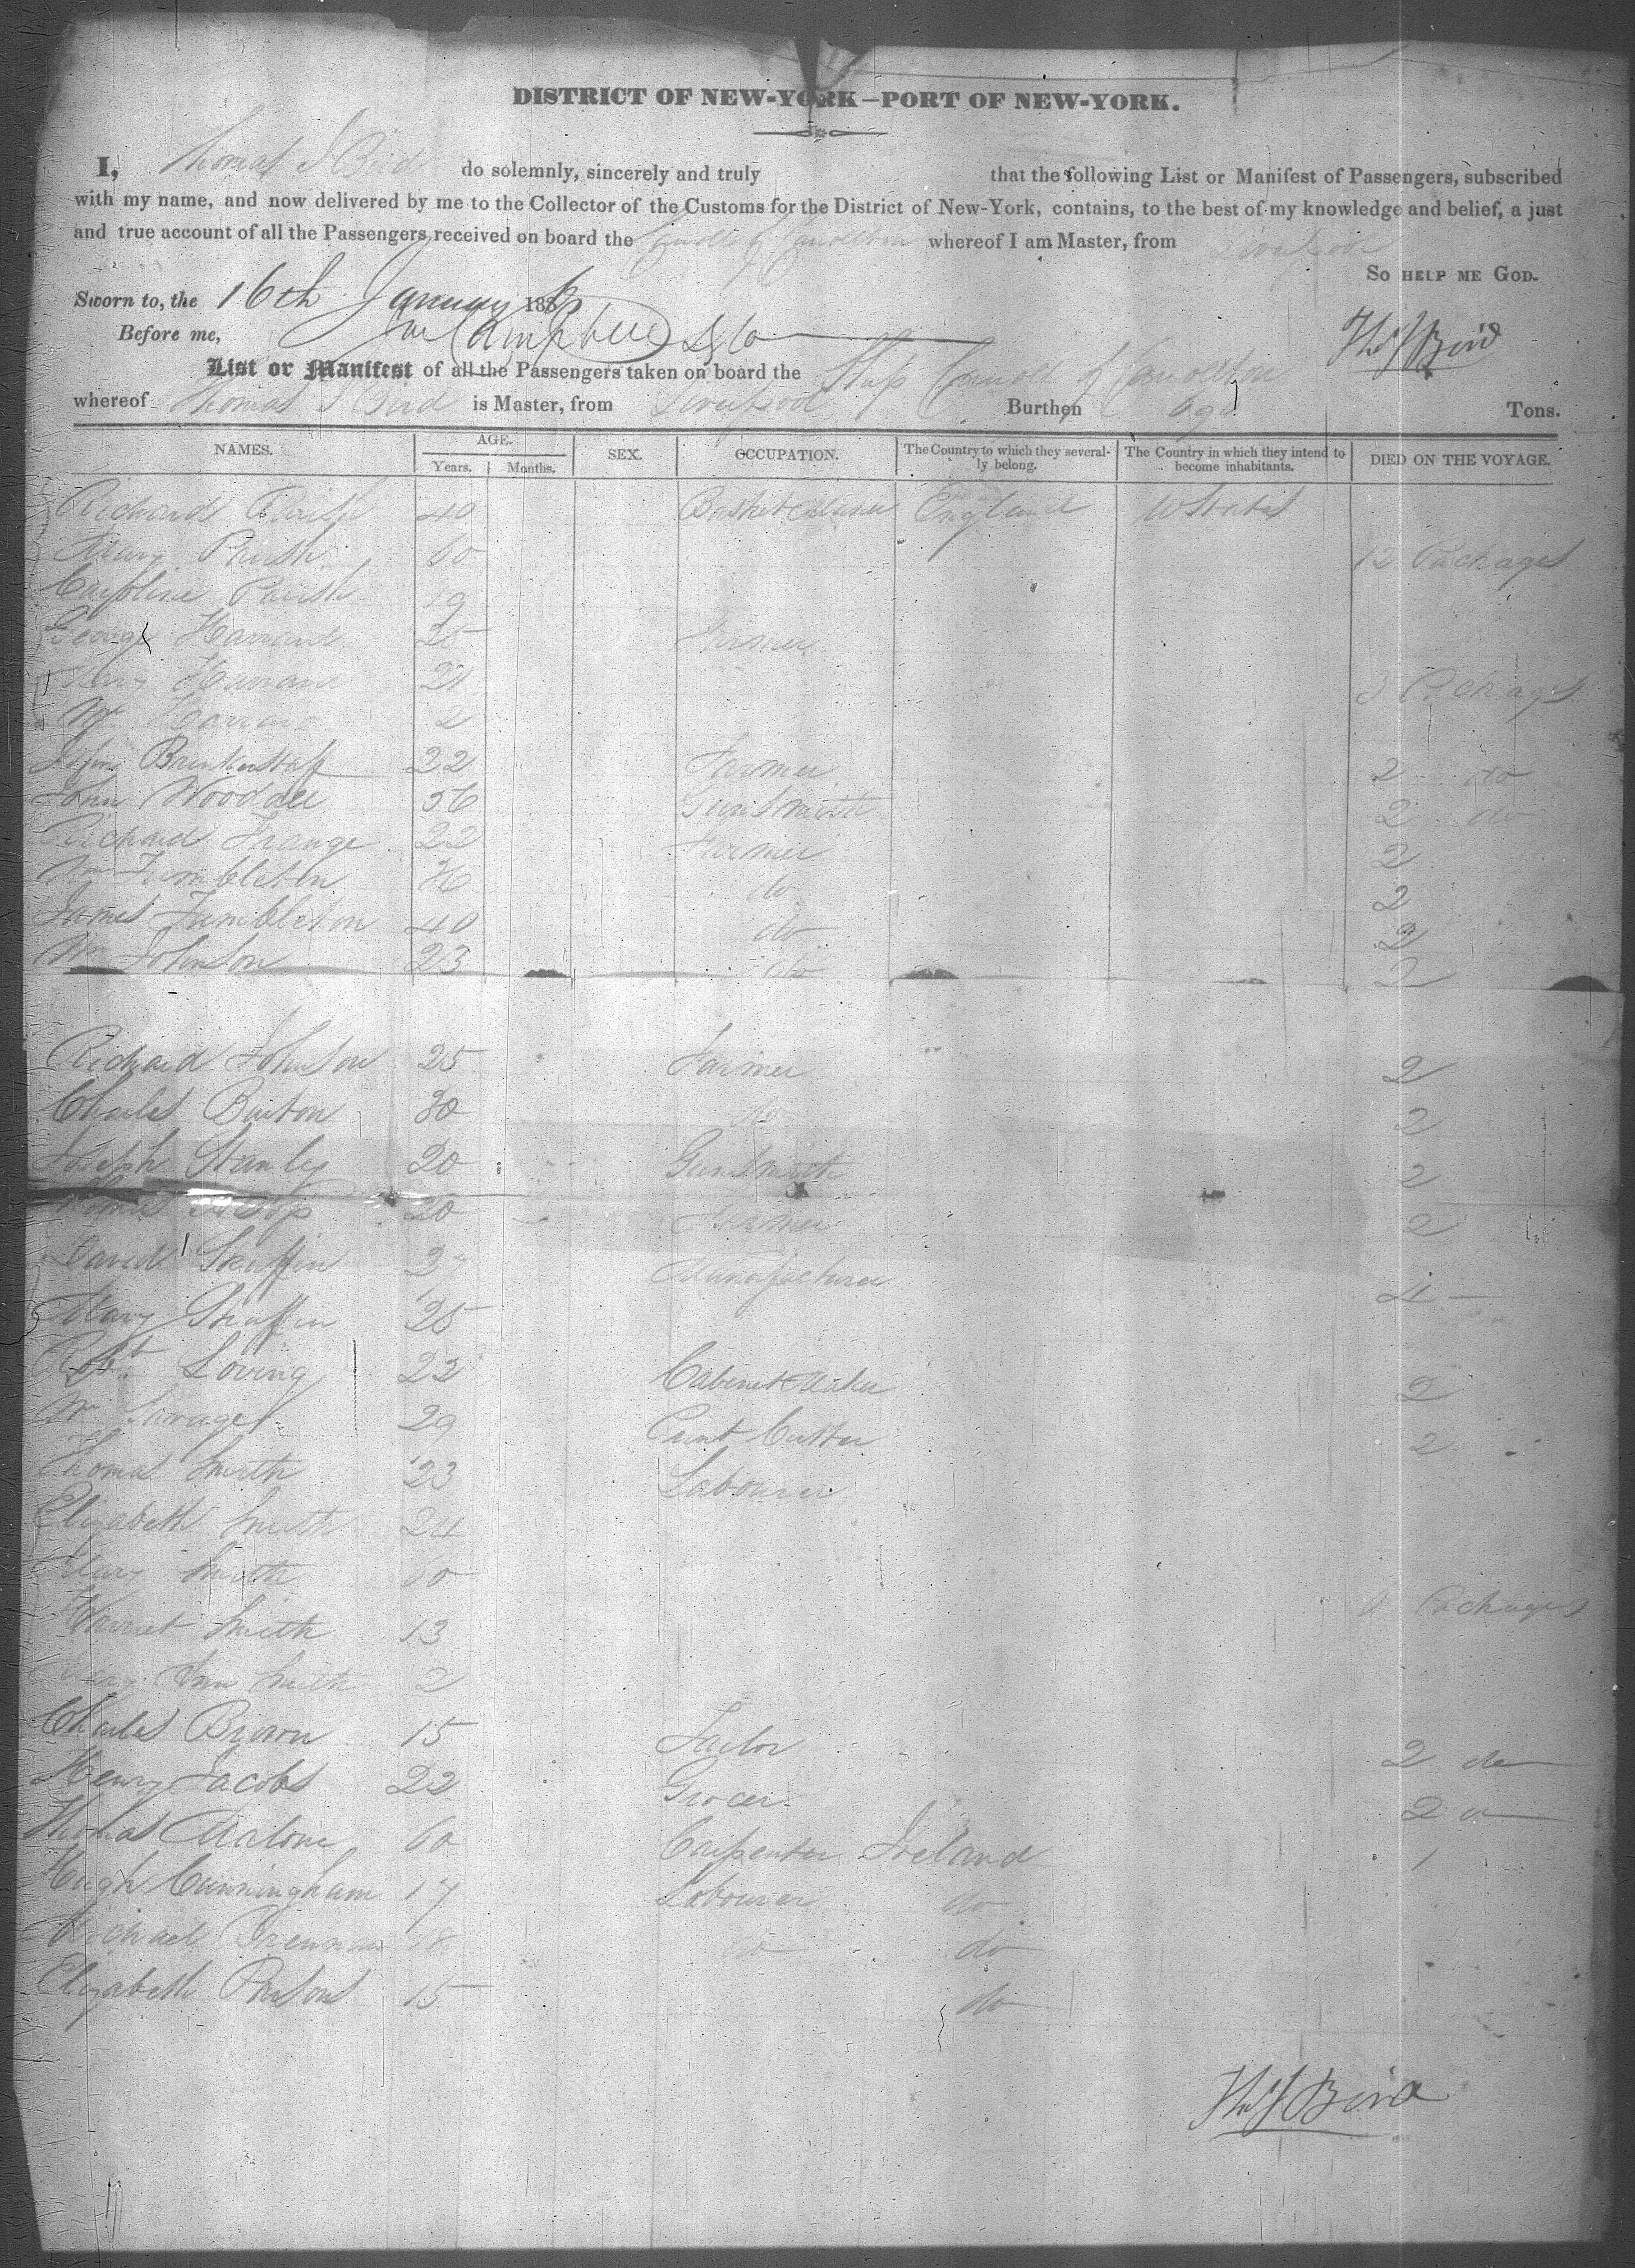 DISTRICT OF NEW-YORK—PORT OF NEW-YORK.
I, Thomas J Bird do solemnly, sincerely and truly that the following List or Manifest of Passengers, subscribed
with my name, and now delivered by me to the Collector of the Customs for the District of New-York, contains, to the best of my knowledge and belief, a just
and true account of all the Passengers received on board the Carroll of Carrollton whereof I am Master, from Liverpool
So help me God.
Sworn to, the 16th January 183
Before me, Campbell Thos J Bird
List or Manifest of all the Passengers taken on board the Ship Carroll of Carrollton
whereof Thomas J Bird is Master, from Liverpool Burthen Tons.
NAMES. AGE. Years. Months. SEX. OCCUPATION. The Country to which they severally belong. The Country in which they intend to become inhabitants. DIED ON THE VOYAGE.
Richard Parish 40 Basket Maker England U States
Mary Parish 60 12 Packages
Caroline Parish 19
George Harrard 25 Farmer
Mary Harrard 21 3 Packages
Wm Harrard 2
John 22 Farmer 2 do
John Woodall 56 Gun Smith 2 do
Richard 22 Farmer 2
Wm Tumbleton do 2
James Tumbleton 40 do 2
Wm Johnson 23 do 2
Richard Johnson 25 Farmer 2
Charles Burton 30 do 2
Joseph Stanley 20 Gun Smith 2
20 Farmer 2
David Skuffin 27 Manufacturer 4 —
Mary Skuffin 25
Robt Loving 22 Cabinet Maker 2
Wm Savage 29 Cutter 2
Thomas Smith 23 Labourer
Elizabeth Smith 24
Mary Smith 60
Harriet Smith 13 Packages
Mary Ann Smith 2
Charles Brown 15 Tailor 2 do
Henry Jacobs 22 Grocer 2
Thomas Malone 60 Carpenter Ireland 1
Hugh Cunningham 17 Labourer do
Michael Brennan 18 do do
Elizabeth Parsons 15 do
Thos J Bird